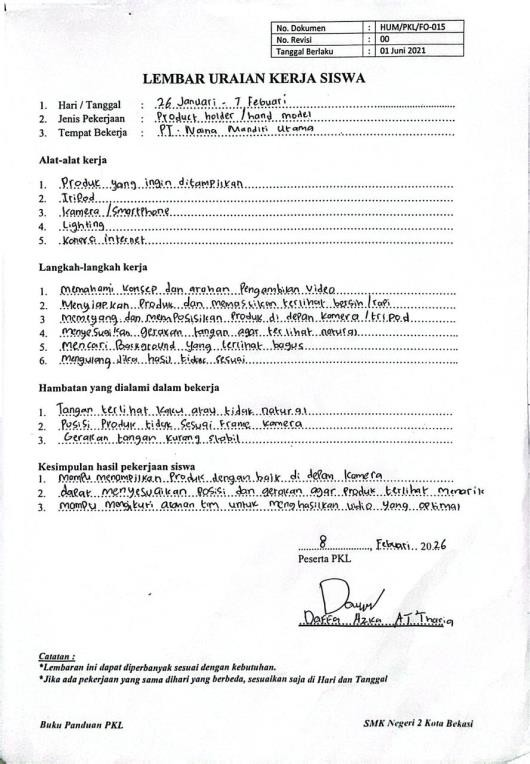 No. Dokumen : HUM/PKL/FO-015
No. Revisi : 00
Tanggal Berlaku : 01 Juni 2021
LEMBAR URAIAN KERJA SISWA
1. Hari / Tanggal : 26 Januari - 7 Febuari
2. Jenis Pekerjaan : Product holder / hand model
3. Tempat Bekerja : PT. Naina Mandiri Utama
Alat-alat kerja
1. Produk yang ingin ditampilkan
2. Tripod
3. Kamera / Smartphone
4. Lighting
5. Koneksi internet
Langkah-langkah kerja
1. Memahami konsep dan arahan Pengambilan Video
2. Menyiapkan Produk dan memastikan terlihat bersih/rapi
3. Memegang dan memposisikan Produk di depan kamera / tripod
4. Menyesuaikan gerakan tangan agar terlihat natural
5. Mencari Background yang terlihat bagus
6. Mengulang jika hasil tidak sesuai
Hambatan yang dialami dalam bekerja
1. Tangan terlihat kaku atau tidak natural
2. Posisi Produk tidak sesuai Frame kamera
3. Gerakan tangan kurang stabil
Kesimpulan hasil pekerjaan siswa
1. mampu menampilkan Produk dengan baik di depan kamera
2. dapat menyesuaikan Posisi dan gerakan agar Produk terlihat menarik
3. mampu mengikuti arahan tim untuk menghasilkan vidio yang optimal
8, Febuari.. 2026
Peserta PKL
Daffa Azka AT Thariq
Catatan :
*Lembaran ini dapat diperbanyak sesuai dengan kebutuhan.
*Jika ada pekerjaan yang sama dihari yang berbeda, sesuaikan saja di Hari dan Tanggal
Buku Panduan PKL SMK Negeri 2 Kota Bekasi